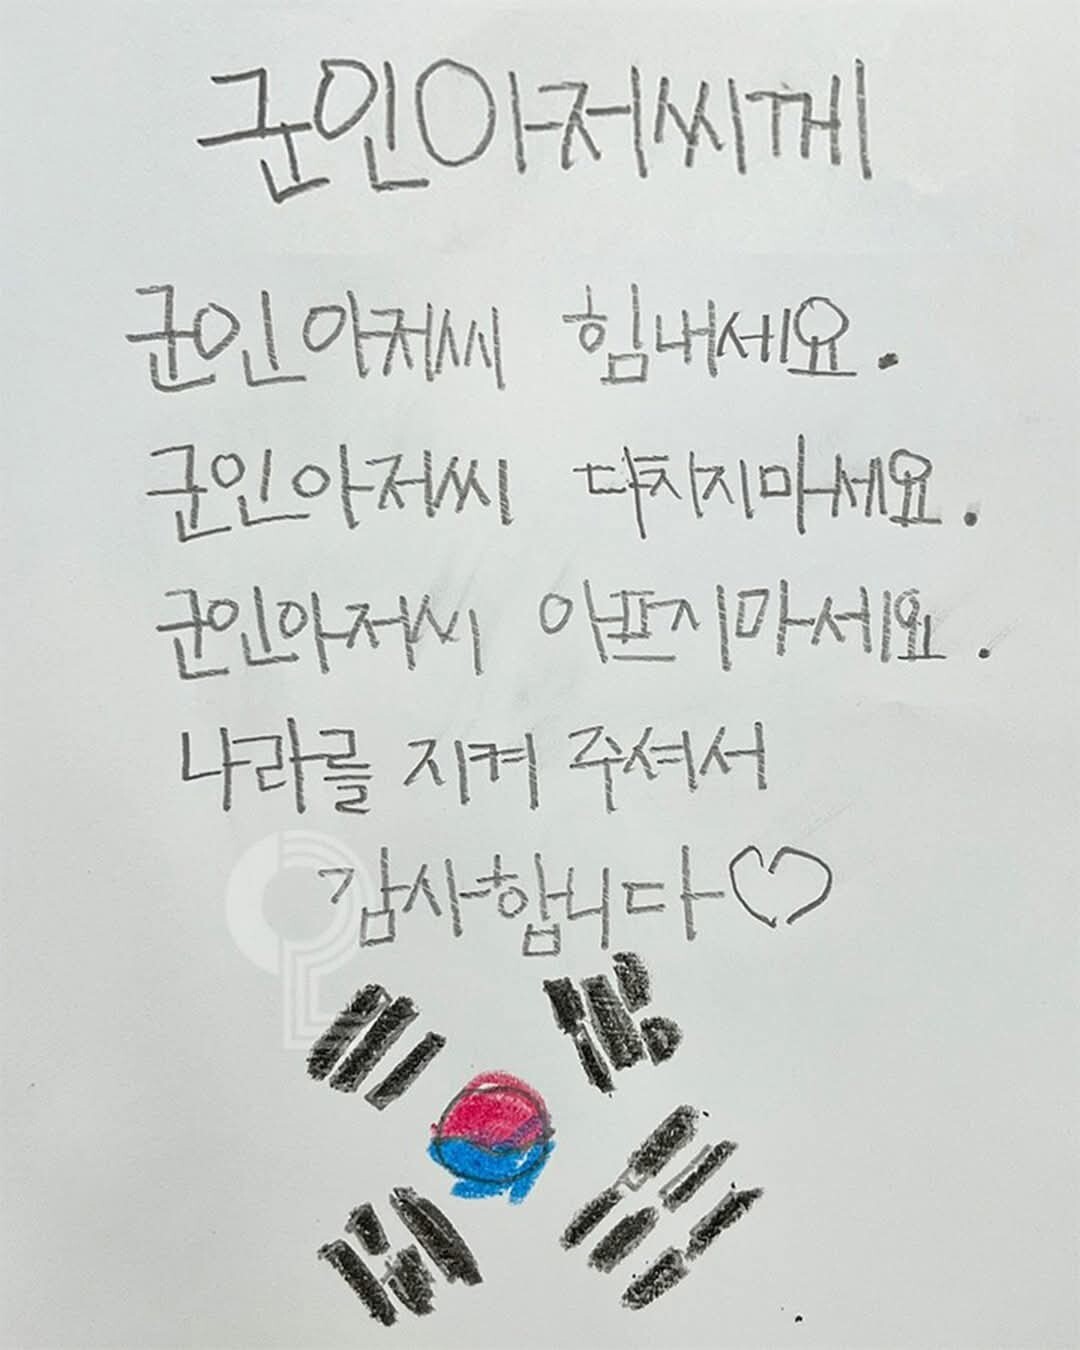 군인아저씨께
군인아저씨 힘내세요.
군인아저씨 다치지마세요.
군인아저씨 아프지마세요.
나라를 지켜 주셔서
감사합니다♡